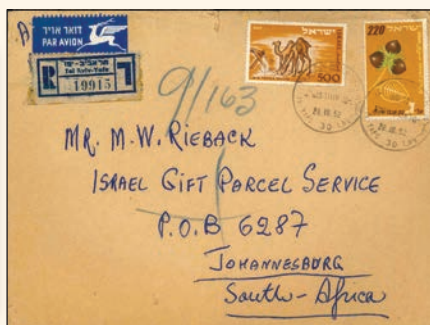 A
דואר אויר
PAR AVION
R
תל אביב-יפו
Tel Aviv-Yafo
19915
9/163
ישראל
ISRAEL
500
220
ישראל
MR. M.W. RIEBACK
ISRAEL GIFT PARCEL SERVICE
P.O.B 6287
JOHANNESBURG
South-Africa